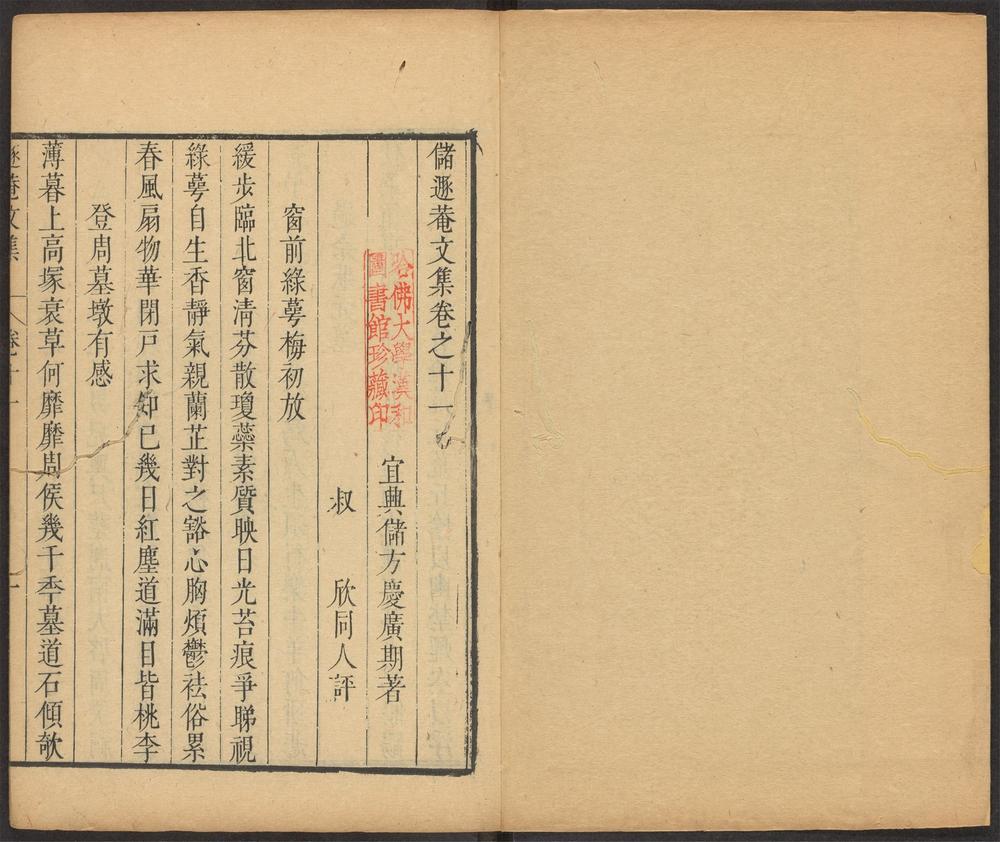 儲遯菴文集卷之十一
宜興儲方慶廣期著
叔　欣同人評
窗前綠萼梅初放
緩步臨北窗淸芬散瓊蘂素質映日光苔痕爭睇視
綠萼自生香靜氣親蘭芷對之豁心胸煩鬱祛俗累
春風扇物華閉戸求知已幾日紅塵道滿目皆桃李
登周墓墩有感
薄暮上高塚衰草何靡靡周侯幾千秊墓道石傾欹
遯菴文集　卷十一　一
哈佛大學漢和
圖書館珍藏印